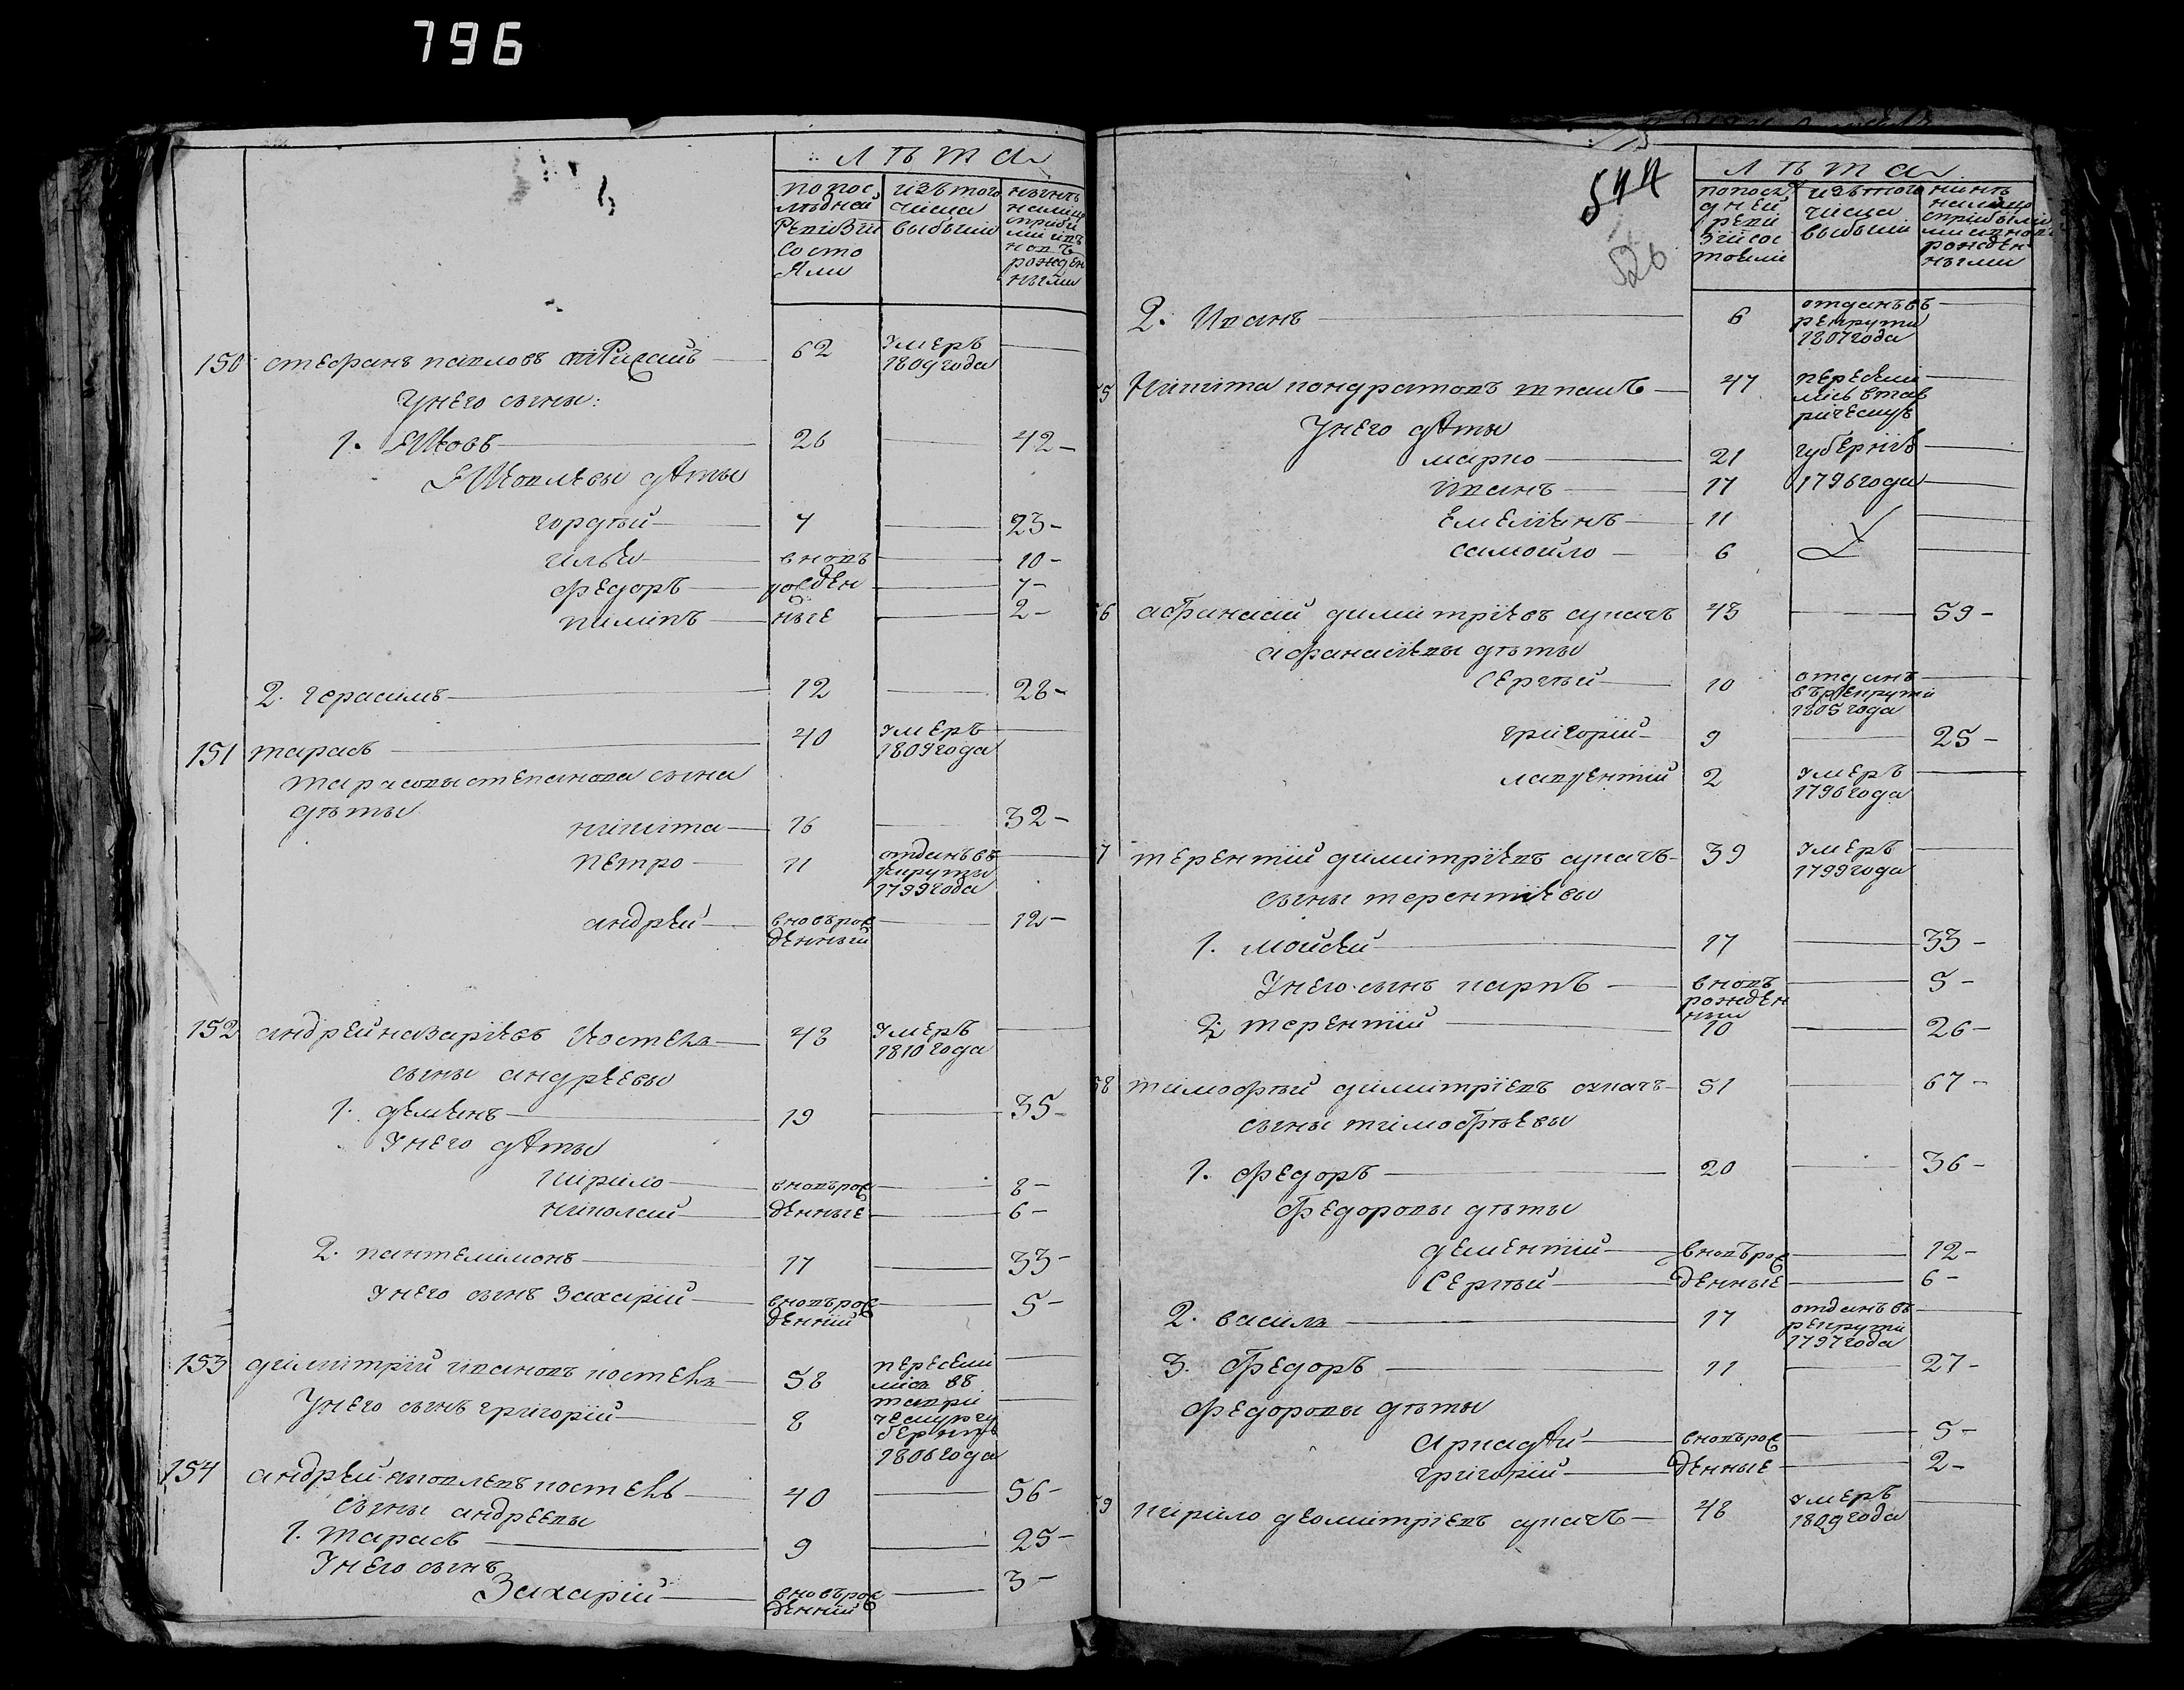 796
Лѣта
по пос
лѣдней
ревизіи
состо
яли
изътого
числа
выбыли
нынѣ
налицо
сприбы
лми и
вновъ
рожден
ными
150 стефанъ павловъ 62 умеръ
1809 года
унего сыны:
1. Яковъ 26 42 -
Яковлевы дѣты
гордѣй 7 23 -
илья вновъ 10 -
федоръ рожден 7 -
пилипъ ные 2 -
2. герасимъ 12 28 -
151 тарасъ 40 умеръ
1809 года
тарасовы степанова сына
дѣты
никита 16 32 -
петро 11 отданъ въ
рекруты
1799 года
андрей вновърож 12 -
денный
152 андрей назаріевъ костеля 43 умеръ
1810 года
сыны андреевы
1. демянъ 19 35 -
унего дѣты
кирило вновърож 8 -
николай денные 6 -
2. пантелимонъ 17 33 -
унего сынъ захарій вновърож 5 -
денній
153 димитрій ивановъ костеля 58 пересели
лися въ
таври
унего сынъ григорій 8 ческую гу
бернію
1806 года
154 андрей яковлевъ костеля 40 56 -
сыны андреевы
1. тарасъ 9 25 -
унего сынъ
Захарій вновърож 3 -
денній
544
526
Лѣта
попослѣ
дней
реви
зіи сос
тояли
изътого
числа
выбыли
нинѣ
налицо
сприбылы
ми ивновъ
рожден
ными
2. Иванъ 6 отданъ въ
рекруты
1807 года
5 Никита кондратовъ 47 пересели
лись втав
рическую
унего дѣты
марко 21 губернію
иванъ 17 1796 года
емелянъ 11
самойло 6
6 афанасій димитріевъ сукачъ 43 59 -
афанасіевы дѣты
Сергѣй 10 отданъ
въ рекруты
1805 года
григорій 9 25 -
лаврентій 2 умеръ
1796 года
7 терентій димитріевъ сукачъ 39 умеръ
1799 года
сыны терентіевы
1. мойсей 17 33 -
унего сынъ карпъ вновъ 5 -
рожден
ный
2. терентій 10 26 -
58 тимофѣй димитріевъ сукачъ 51 67 -
сыны тимофѣевы
1. федоръ 20 36 -
федоровы дѣты
дементій вновърож 12 -
Сергѣй денные 6 -
2. василь 17 отданъ въ
рекруты
1797 года
3. федоръ 11 27 -
федоровы дѣты
аркадѣй вновърож 5 -
григорій денные 2 -
59 кирило деомитріевъ сукачъ 48 умеръ
1809 года